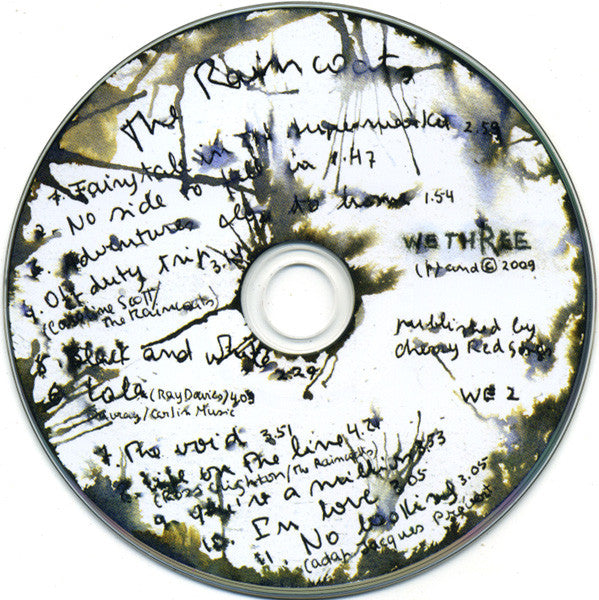 The Raincoats
1. Fairytale in the supermarket 2.59
2. No side to fall in 1.47
3. Adventures close to home 1.54
4. Off duty trip
(Caroline Scott/
The Raincoats)
5. Black and white 2.29
6. Lola (Ray Davies) 4.03
Davray/Carlin Music
7. The void 3.51
8. Life on the line
(Ross Crighton/The Raincoats)
9. You're a million
10. In love 3.05
11. No looking 3.05
(adap. Jacques Prévert
WE THREE
(P) and © 2009
published by
cherry Red Songs
WE 2